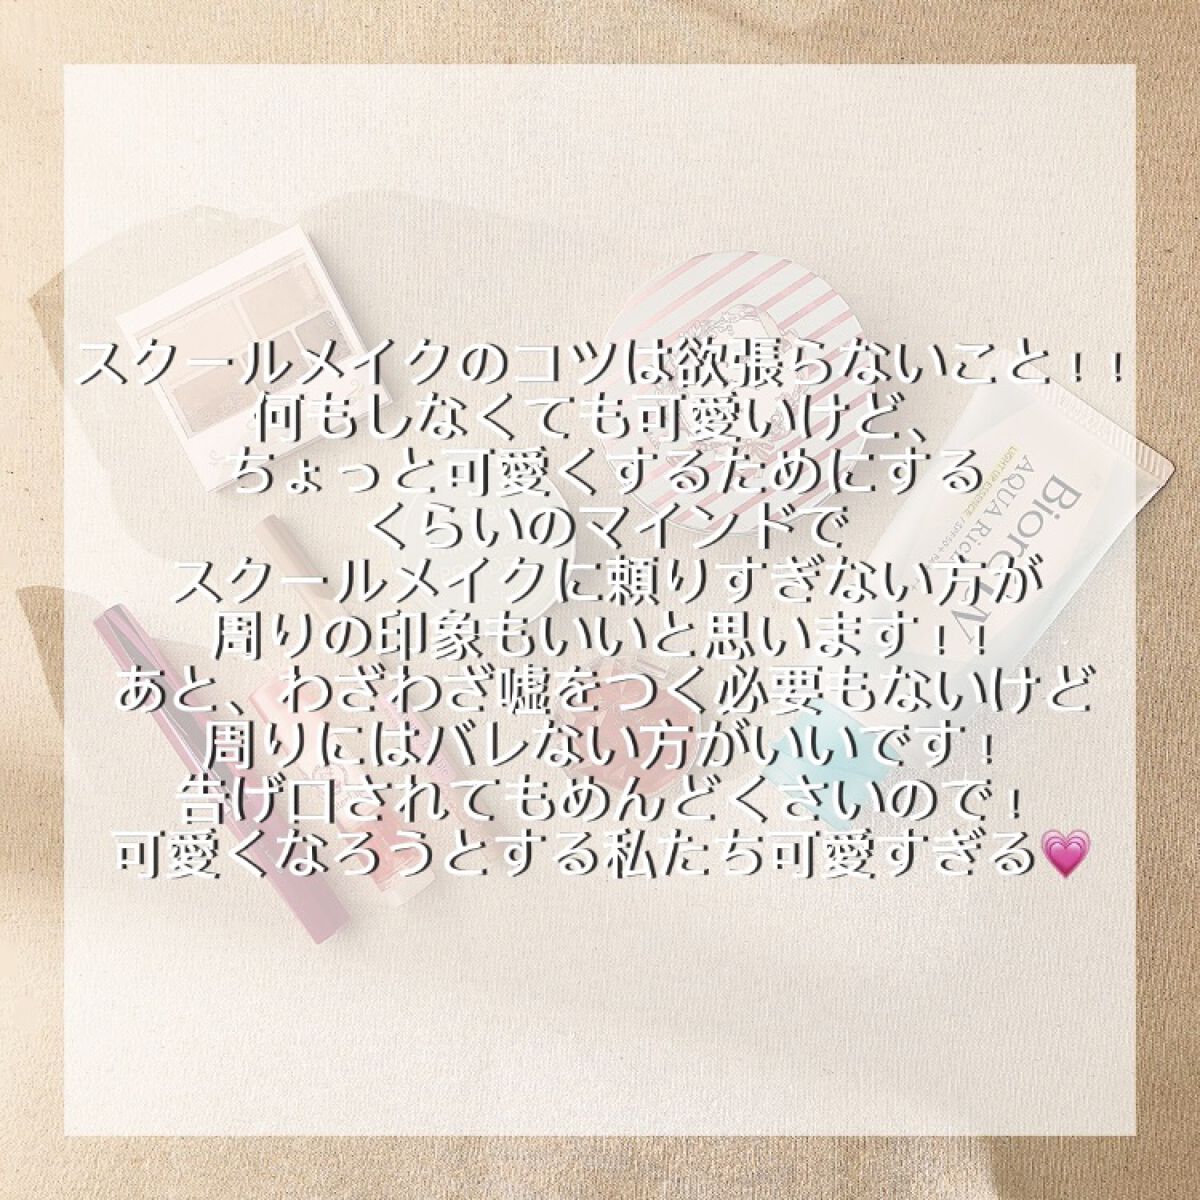 スクールメイクのコツは欲張らないこと！！
何もしなくても可愛いけど、
ちょっと可愛くするためにする
くらいのマインドで
スクールメイクに頼りすぎない方が
周りの印象もいいと思います！！
あと、わざわざ嘘をつく必要もないけど
周りにはバレない方がいいです！
告げ口されてもめんどくさいので！
可愛くなろうとする私たち可愛すぎる💗
Bioré UV
AQUA Rich